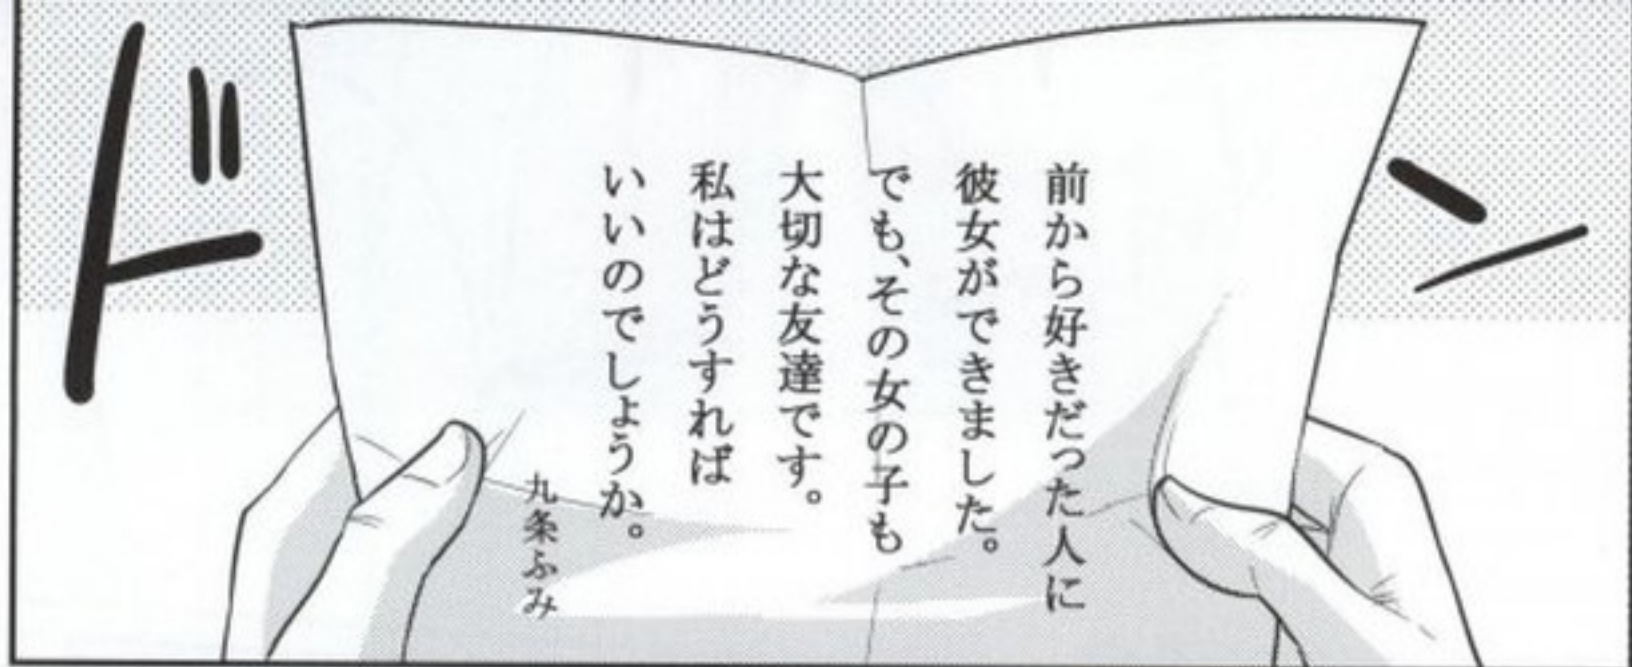 前から好きだった人に
彼女ができました。
でも、その女の子も
大切な友達です。
私はどうすれば
いいのでしょうか。
九条ふみ
ドン